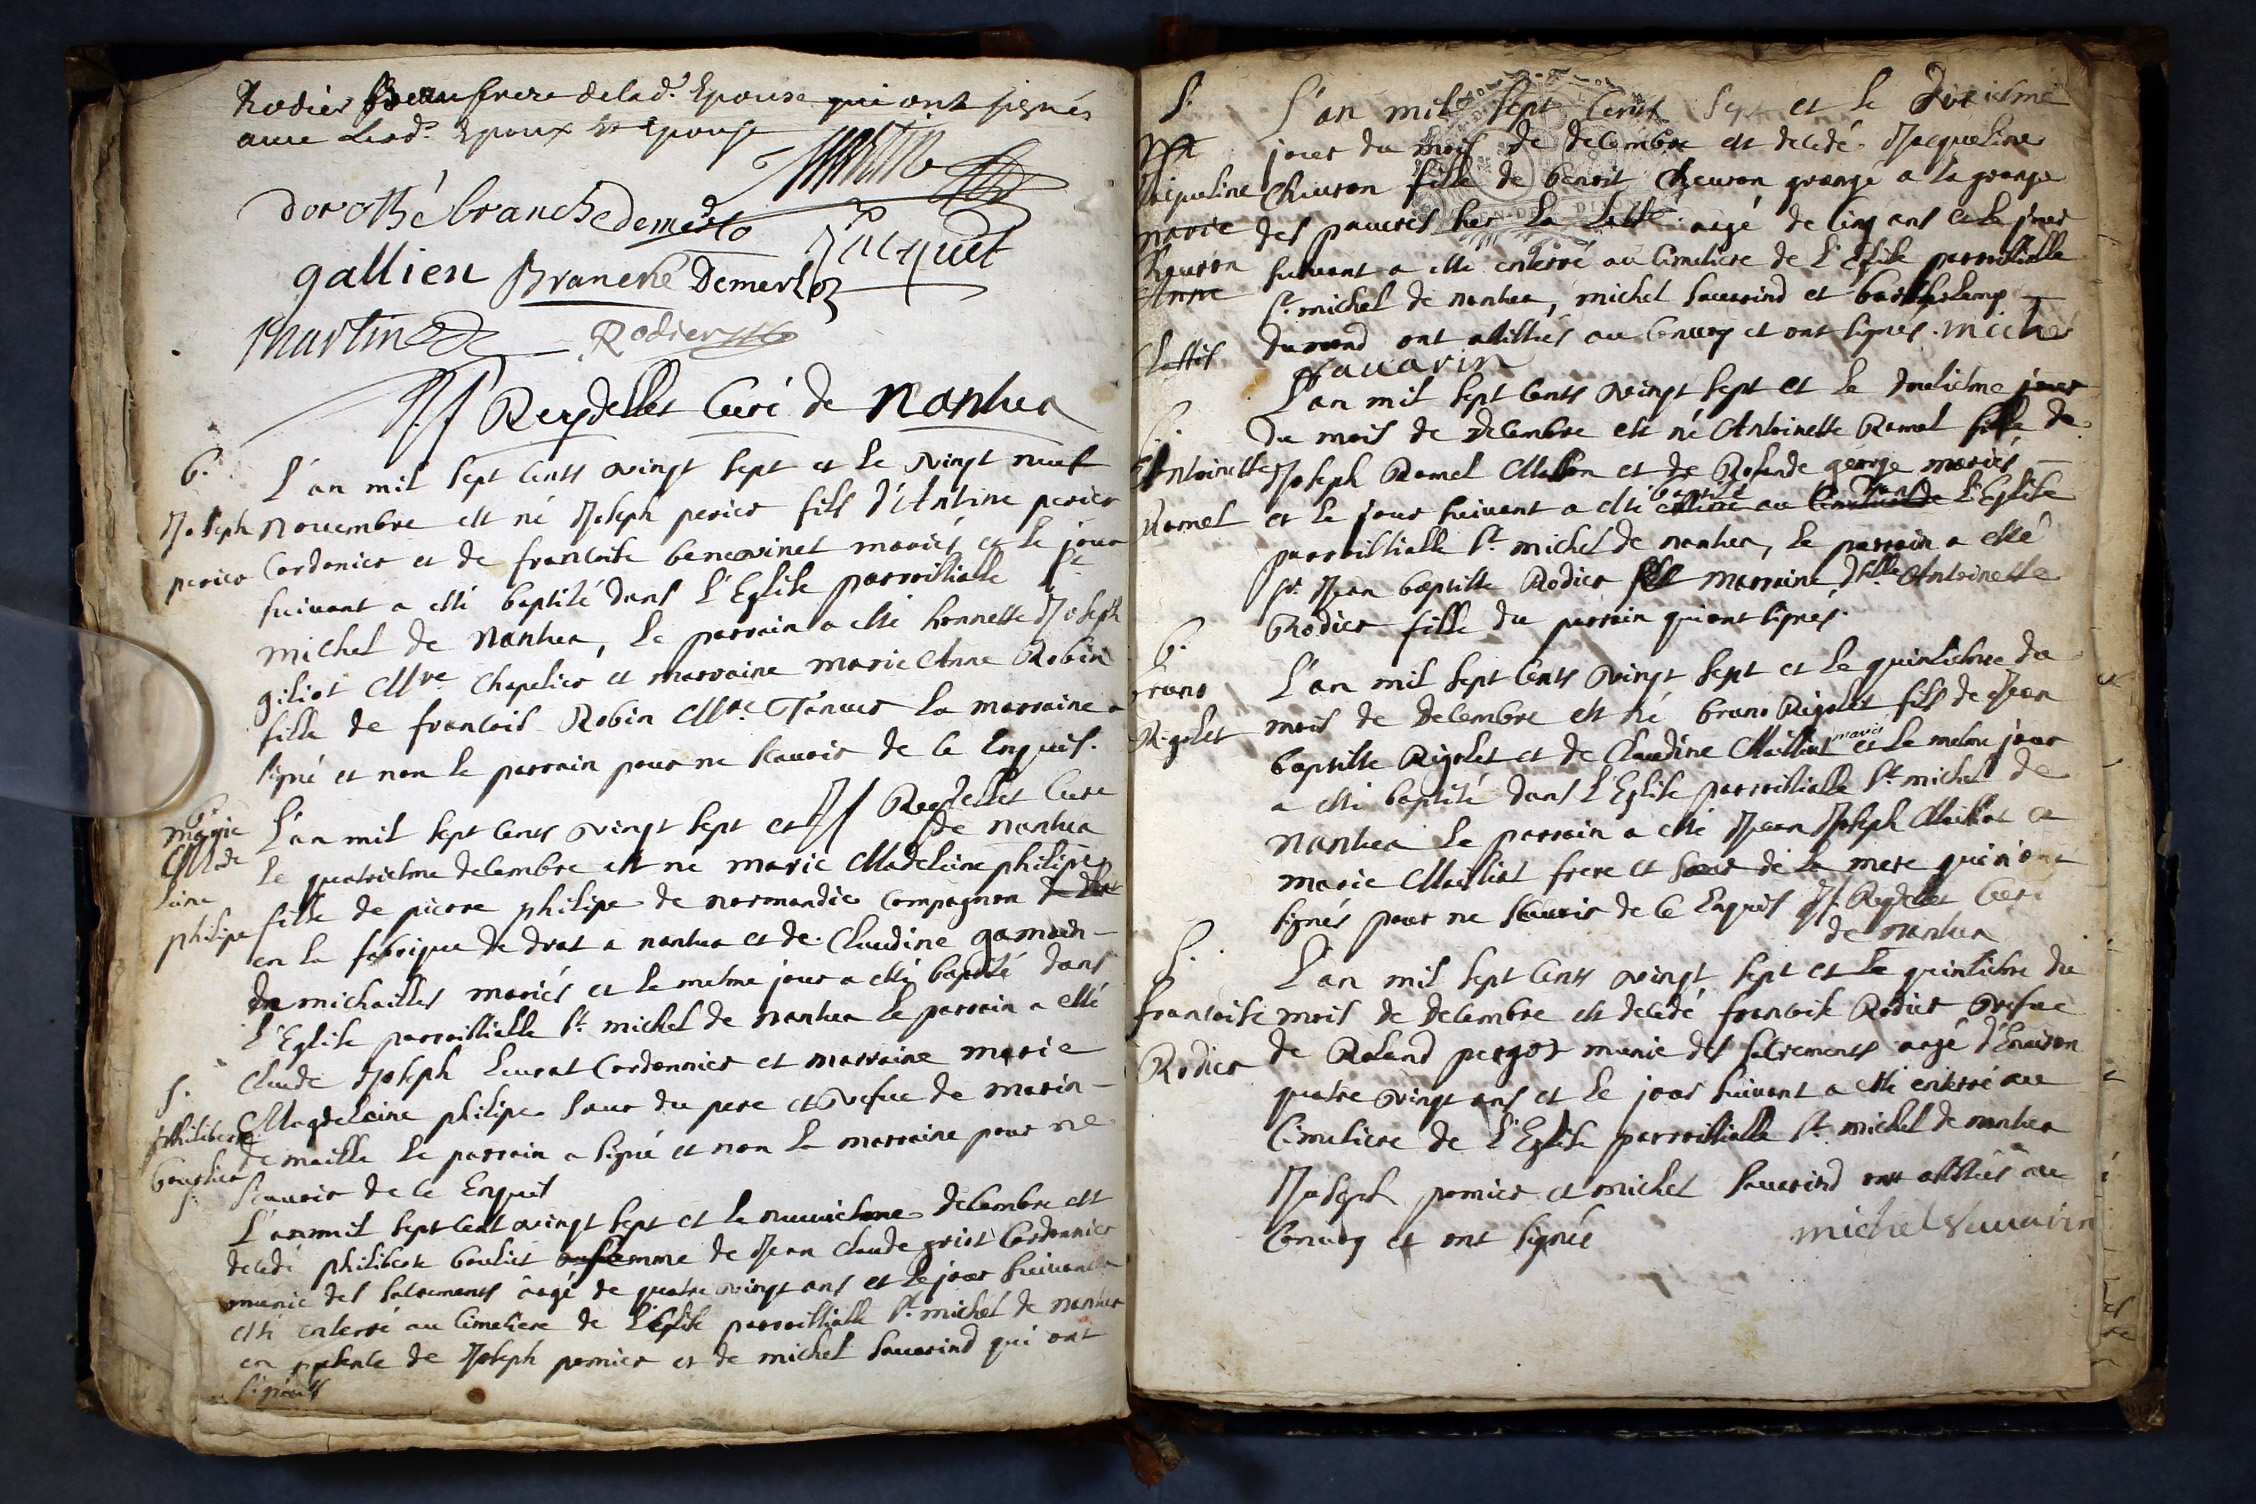 Rodier beaufrere de lad.e Epouse qui ont signés
avec Lesd.s Epoux et Epouse
martin
dorothé branche demerlo
Jacquet
gallien Branche Demerloz
martin Rodier
Reydellet Curé de Nantua
b.
Joseph
perier
L'an mil sept cents vingt sept et le vingt neuf
Novembre est né Joseph perier fils d'Antoine perier
Cordonier et de francoise benevinet mariés et le jour
suivant a esté baptisé dans l'Eglise parroissialle St
michel de Nantua, le parrain a esté honneste Joseph
giliot Mre Chapelier et marraine marie Anne Robin
fille de francois Robin Mre Tanneur la marraine a
signé et non le parrain pour ne scavoir de ce Enquis.
Reydellet Curé
de nantua
b.
marie
Made
leine
philipe
L'an mil sept cents vingt sept et
le quatriesme decembre est né marie Madeleine philipe
fille de pierre philipe de normandie Compagnon
en la fabrique de drat a nantua et de Claudine gamain
de michailles mariés et le mesme jour a esté baptisé dans
l'Eglise parroissialle St michel de nantua le parrain a esté
Claude Joseph Leurat Cordonnier et marraine marie
Magdeleine philipe soeur du pere et vefve de marin
de maille le parrain a signé et non la marraine pour ne
scavoir de ce Enquis
S.
philiberte
boulier
L'an mil sept cent vingt sept et le neuviesme decembre est
decedé philiberte boulier femme de Jean Claude griot Cordonnier
munie des sacrements aagé de quatre vingt ans et le jour suivant a
esté enterré au Cimetiere de l'Eglise parroissialle St michel de nantua
en presence de Joseph pernier et de michel sauvarind qui ont
signés
S.
Jacqueline
marie
Cheuron
L'an mil sept cents sept et le dixiesme
jour du mois de decembre est decedé Jacqueline
Cheuron fille de benoit Cheuron granger a la grange
des pauvres sur la Latte aagé de cinq ans et le jour
suivant a esté enterré au Cimetiere de l'Eglise parroissialle
St michel de nantua, michel sauvarind et barthelemy
durand ont assistés au Convoy et ont signés. michel
sauvarin
b.
Antoinette
Ramel
L'an mil sept cents vingt sept et le douziesme jour
du mois de decembre est né Antoinette Ramel fille de
Joseph Ramel Masson et de Rolande george mariés
et le jour suivant a esté baptisé dans l'Eglise
parroissialle St michel de nantua, le parrain a esté
sr. Jean baptiste Rodier et marraine dlle Antoinette
Rodier fille du parrain qui ont signés.
b.
bruno
Rigolet
L'an mil sept cents vingt sept et le quinziesme du
mois de decembre est né bruno Rigolet fils de Jean
baptiste Rigolet et de Claudine Maillat mariés et le mesme jour
a esté baptisé dans l'Eglise parroissialle St michel de
Nantua le parrain a esté Jean Joseph Maillat et
marie Maillat frere et soeur de la mere qui n'ont
signés pour ne scavoir de ce Enquis Reydellet Curé
de nantua
S.
francoise
Rodier
L'an mil sept cents vingt sept et le quinziesme du
mois de decembre est decedé francoise Rodier vefve
de Roland pergod munie des sacrements aagé d'Environ
quatre vingt ans et le jour suivant a esté enterré au
Cimetiere de l'Eglise parroissialle St michel de nantua
Joseph pernier et michel sauvarind ont assistés au
Convoy et ont signés
michel sauvarin